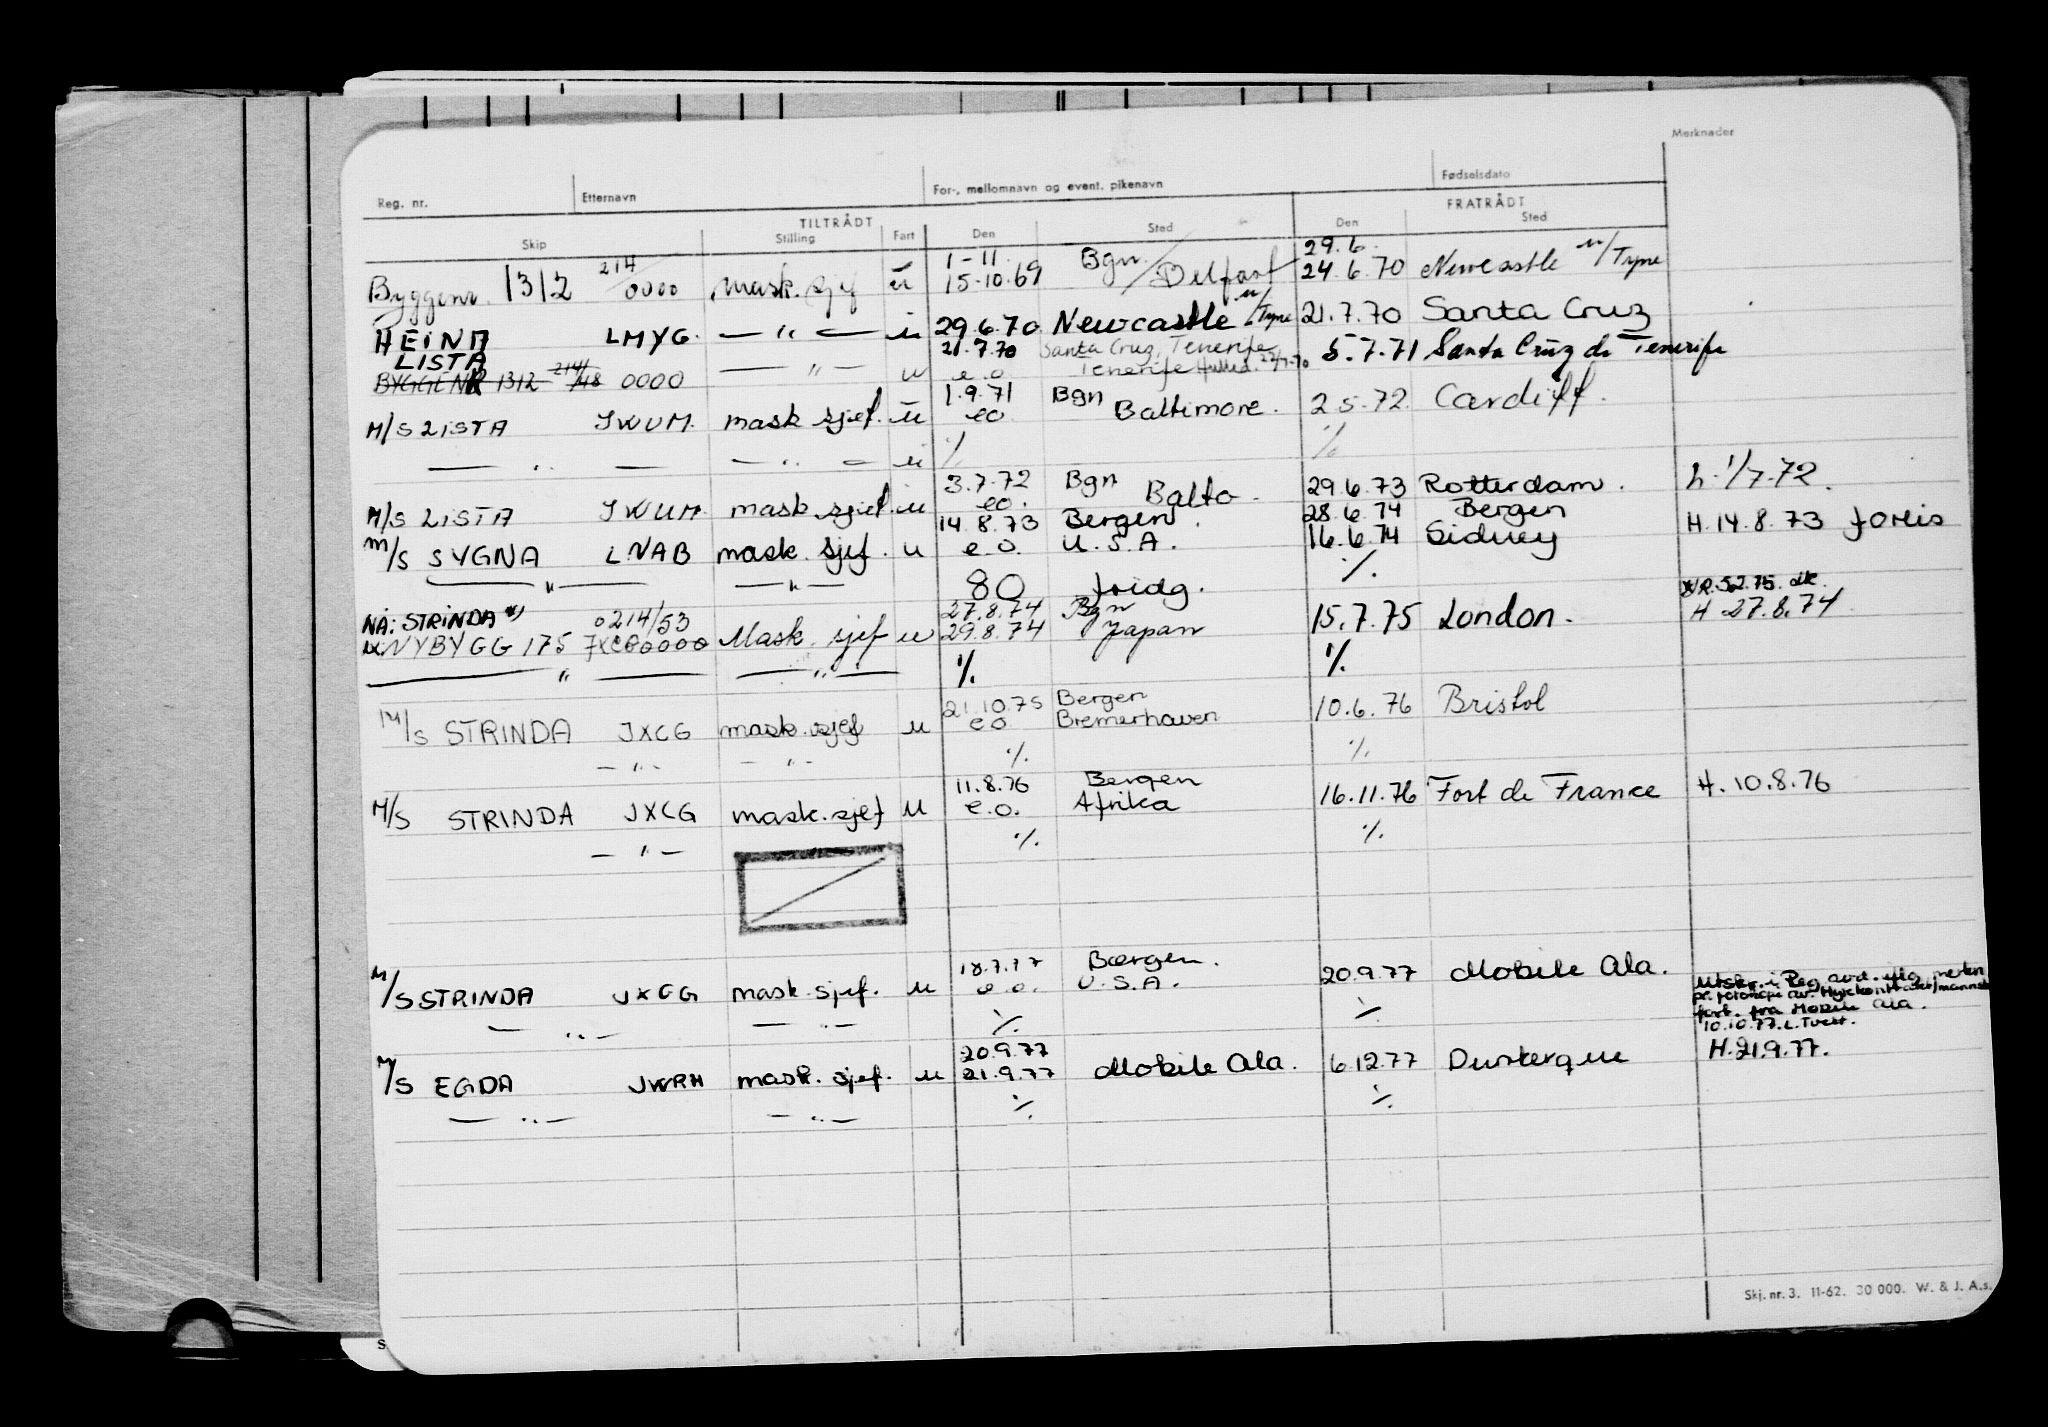 Merknader
Reg. nr. Etternavn For-, mellomnavn og event. pikenavn Fødselsdato
TILTRÅDT FRATRÅDT
Skip Stilling Fart Den Sted Den Sted
1-11 Bgn. 29.6.
Byggenr. 1312 214/0000 Mask. sjef u 15-10.69 / Belfast 24.6.70 Newcastle u/Tyne
HEINA LMYG. — " — u 29.6.70 Newcastle u/Tyne 21.7.70 Santa Cruz
LISTA 21.7.70 Santa Cruz, Tenerife 5.7.71 Santa Cruz de Tenerife
BYGGENR 1312 214/ 0000 — " — u e.o. Tenerife
1.9.71 Bgn
M/S LISTA JWUM. mask sjef. u eo Baltimore. 2 5.72. Cardiff.
— " — — " — u % %
3.7.72 Bgn
M/S LISTA JWUM. mask sjef. u eo. Balto. 29.6.73 Rotterdam. h. 1/7-72.
14.8.73 Bergen. 28.6.74 Bergen
M/S SYGNA LNAB mask. sjef. u e.o. U.S.A. 16.6.74 Sidney H. 14.8.73
— " — — " — 80 fridg. %
NÅ: STRINDA 0214/53 27.8.74 Bgn
NYBYGG 175 JXCG0000 Mask. sjef u 29.8.74 Japan 15.7.75 London. H 27.8.74.
— " — — " — % %
21.10.75 Bergen
M/S STRINDA JXCG mask. sjef u eo Bremerhaven 10.6.76 Bristol
— " — — " — % %
11.8.76 Bergen
M/S STRINDA JXCG mask. sjef u e.o. Afrika 16.11.76 Fort de France H. 10.8.76
— " — % %
18.7.77 Bergen.
M/S STRINDA JXCG mask. sjef. u e.o. U.S.A. 20.9.77 Mobile Ala.
— " — — " — % %
fort. fra Mobile Ala.
10.10.77.
20.9.77
M/S EGDA JWRH mask. sjef. u 21.9.77 Mobile Ala. 6.12.77 Dunkerque H. 21.9.77.
— " — — " — % %
Skj. nr. 3. 11-62. 30 000. W. & J. A.s.